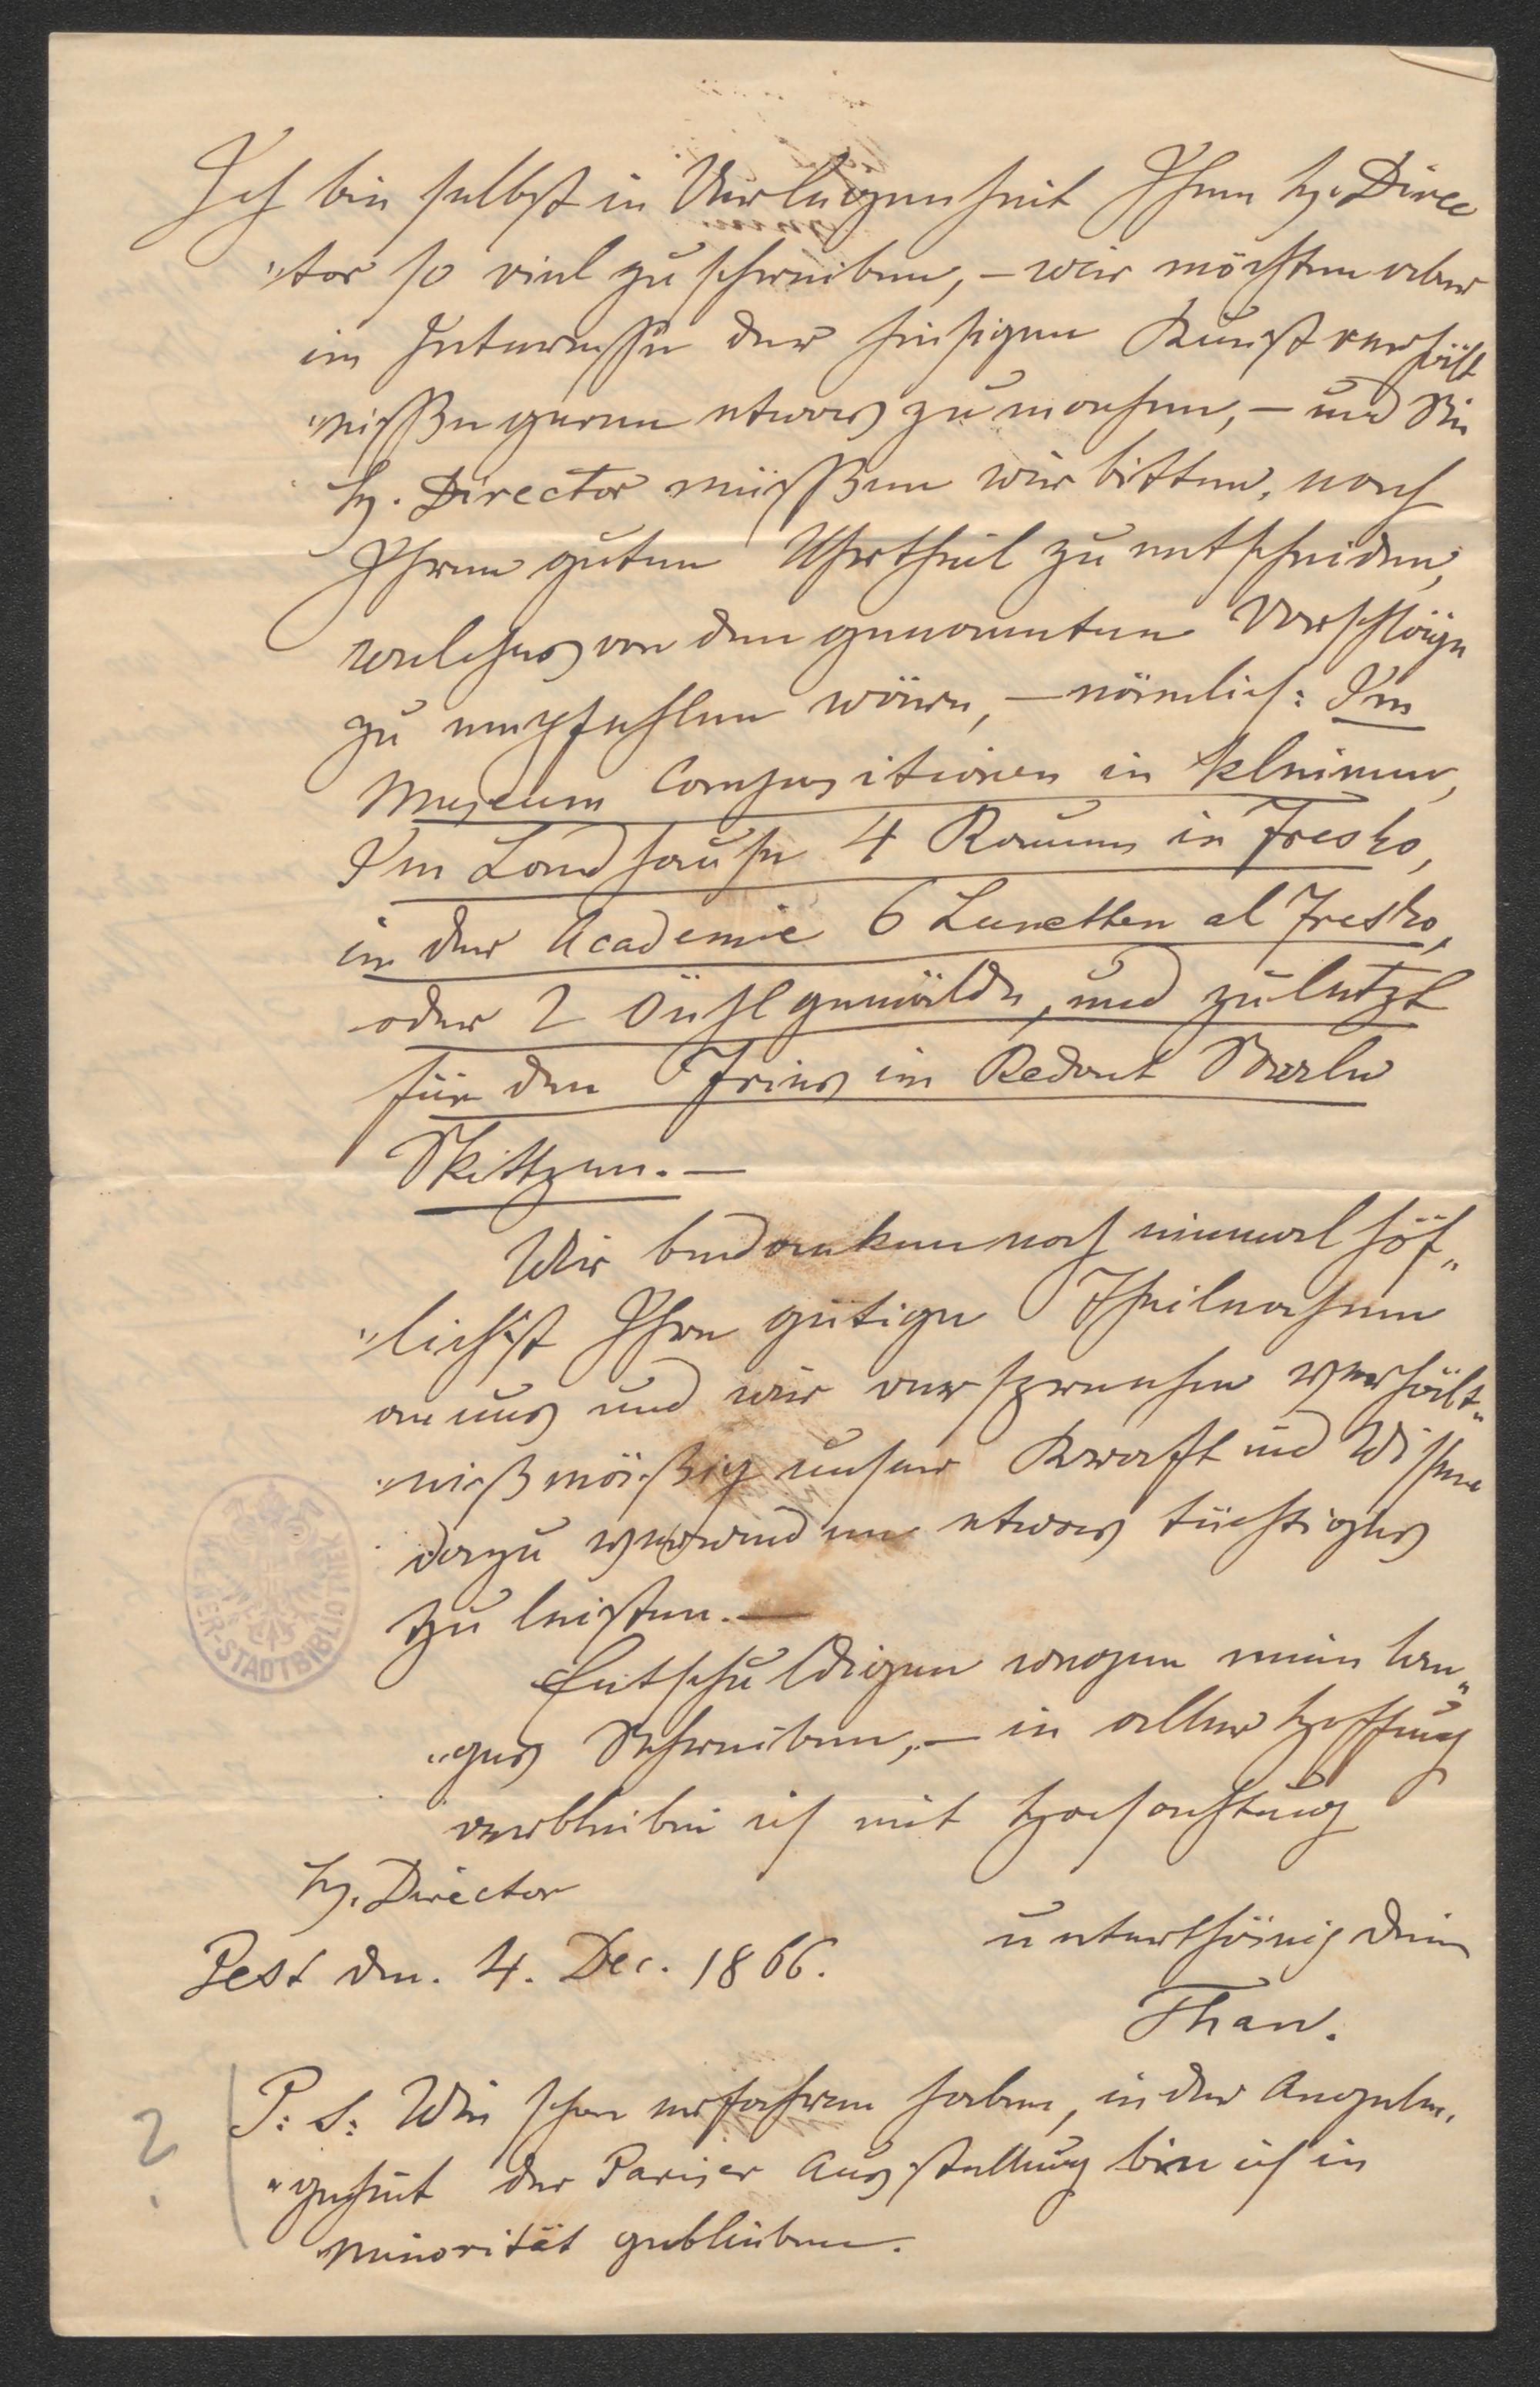 Ich bin selbst in Verlegenheit Ihnen H. Direc
"tor so viel zu schreiben, – wir möchten aber
im Interesse der hiesigen Kunstverhält
"nisse gerne etwas zu machen, – und Sie
H. Director müssen wir bitten, nach
Ihrem guten Uhrtheil zu entscheiden,
welches von den genannten Vorschläge
zu empfehlen wäre, – nämlich: Im
Museum Compositionen in kleinem,
Im Landhause 4 Raume in Fresko,
in der Academie 6 Lunetten al Fresko,
oder 2 Öehlgemälde, und zuletzt
für den Fries im Redout Saale
Skittzen. –
Wir bedanken noch einmal höf"
"lichst Ihre gütige Theilnahme
an uns und wir versprechen verhält"
"nißmäßig unser Kraft und Wissen
dazu verwenden etwas tüchtiges
zu leisten. –
Entschuldigen wegen mein lan"
"ges Schreiben, – in aller Hoffnung
verbleibe ich mit Hochachtung
H. Director
unterthänig
Pest den. 4. Dec. 1866.
Than.
P: S: Wie schon erfahren haben, in der Angele"
"genheit der Pariser Ausstellung bin ich in
Minorität geblieben.
?
WIENER-STADTBIBLIOTHEK